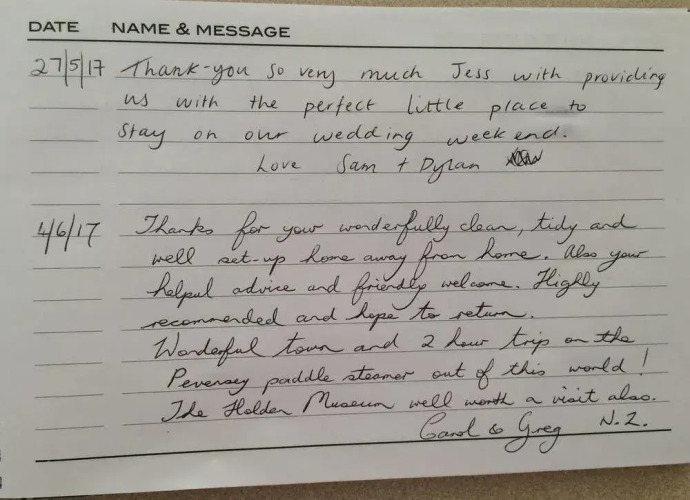 DATE NAME & MESSAGE
27/5/17 Thank-you so very much Jess with providing
us with the perfect little place to
stay on our wedding weekend.
Love Sam + Dylan
4/6/17 Thanks for your wonderfully clean, tidy and
well set-up home away from home. Also your
helpul advice and friendly welcome. Highly
recommended and hope to return.
Wonderful town and 2 hour trip on the
Pevensey paddle steamer out of this world!
The Holden Museum well worth a visit also.
Carol & Greg N.Z.